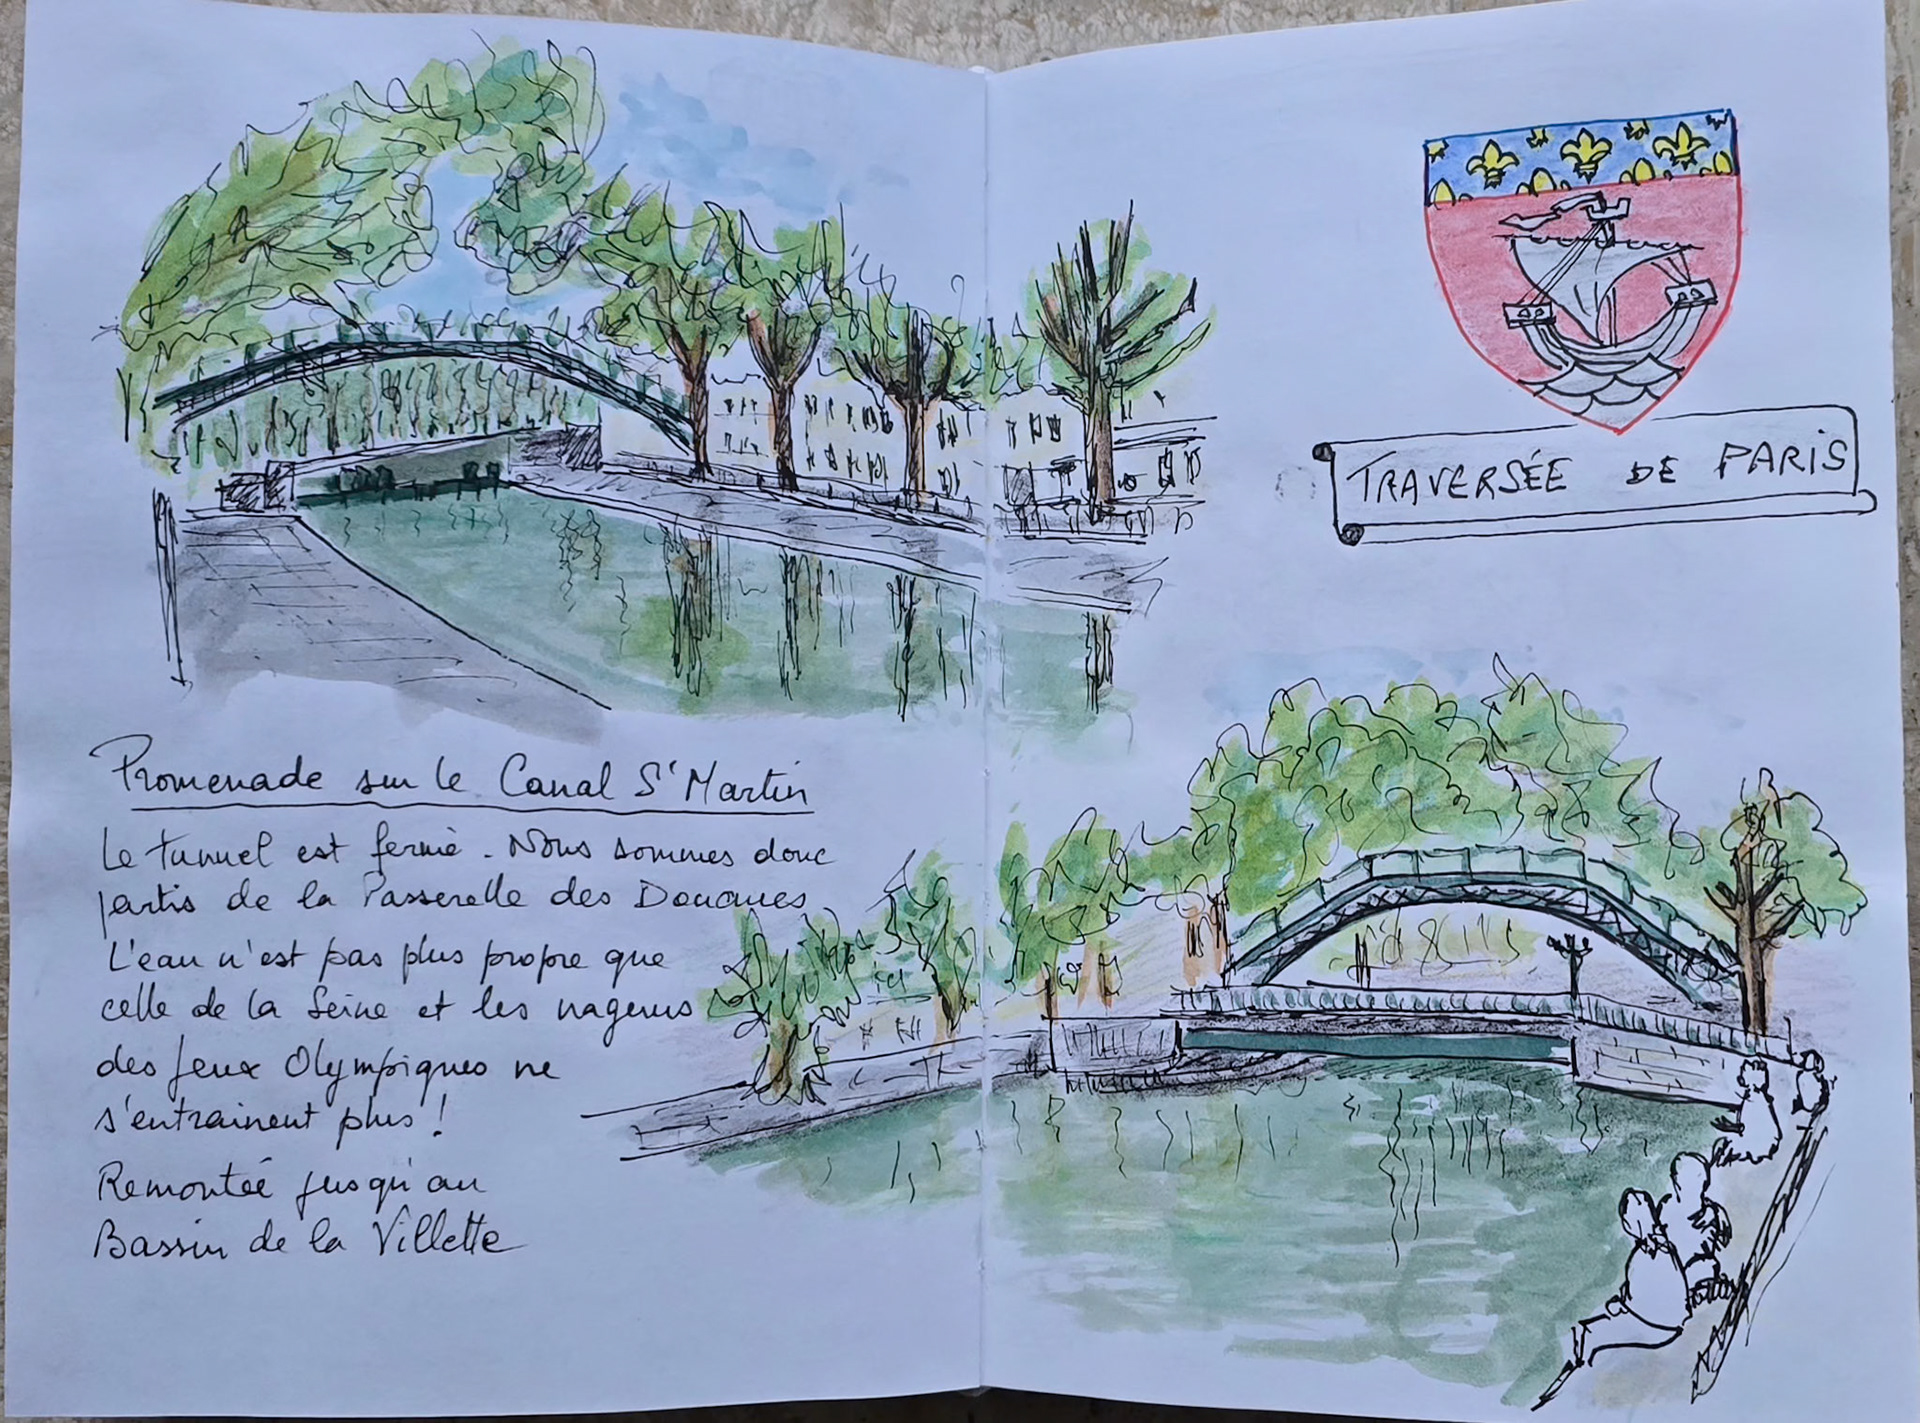 TRAVERSÉE DE PARIS
Promenade sur le Canal St Martin
Le tunnel est fermé. Nous sommes donc
partis de la Passerelle des Douanes
L'eau n'est pas plus propre que
celle de la Seine et les nageurs
des Jeux Olympiques ne
s'entrainent plus !
Remontée jusqu'au
Bassin de la Villette